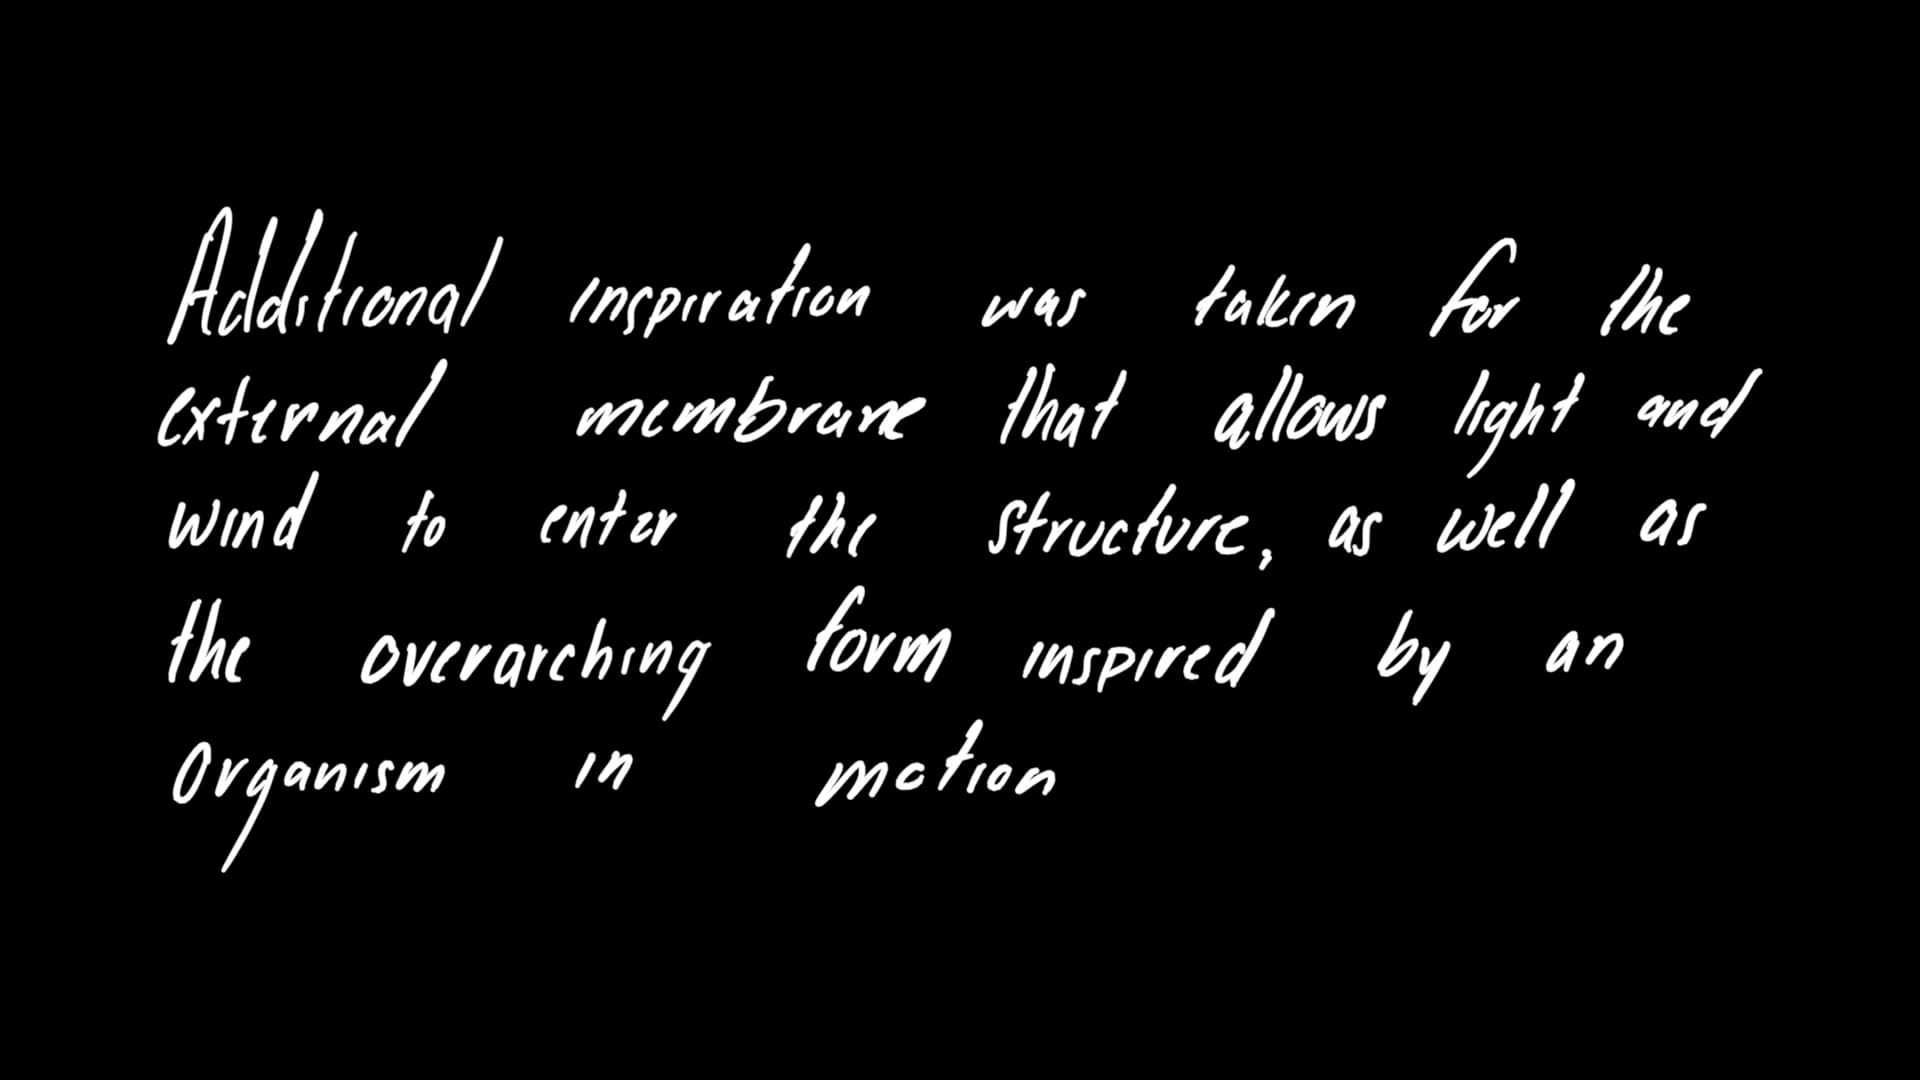 Additional inspiration was taken for the
external membrane that allows light and
wind to enter the structure, as well as
the overarching form inspired by an
organism in motion